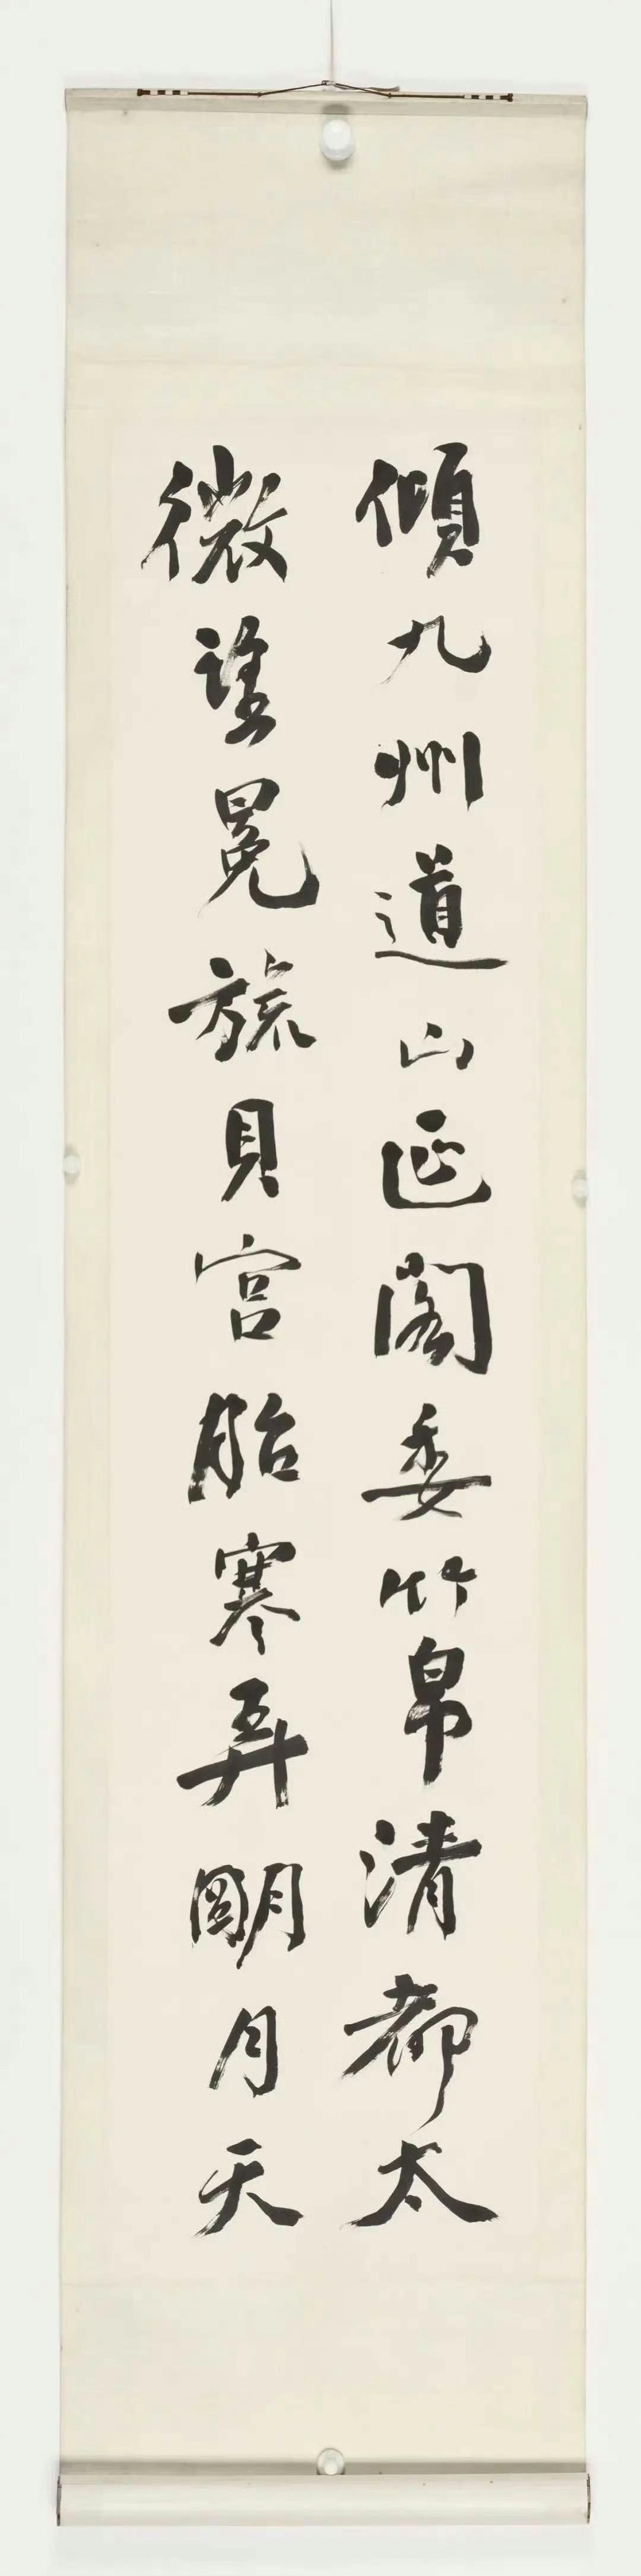 傾九州道山延閣委竹帛清都太
微望冕旒貝宮胎寒弄明月天